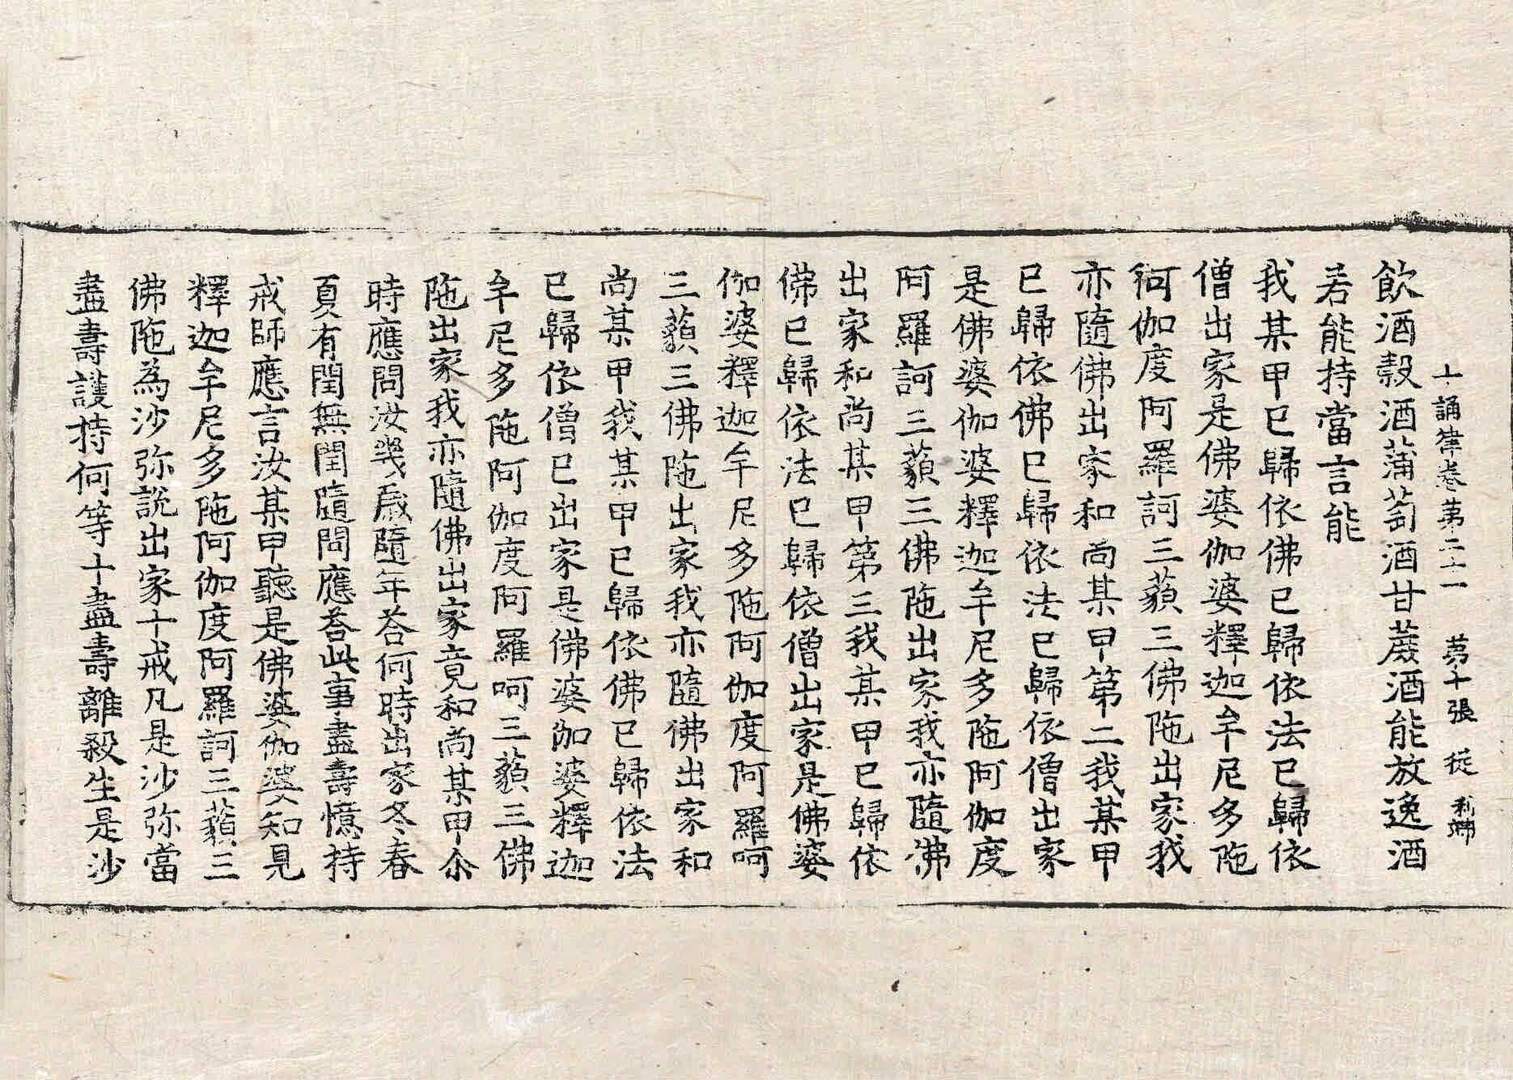 十誦律卷第二十一　第十張　從　利琳
飲酒穀酒蒲萄酒甘蔗酒能放逸酒
若能持當言能
我某甲已歸依佛已歸依法已歸依
僧出家是佛婆伽婆釋迦牟尼多陁
阿伽度阿羅訶三藐三佛陁出家我
亦隨佛出家和尚某甲第二我某甲
已歸依佛已歸依法已歸依僧出家
是佛婆伽婆釋迦牟尼多陁阿伽度
阿羅訶三藐三佛陁出家我亦隨佛
出家和尚某甲第三我某甲已歸依
佛已歸依法已歸依僧出家是佛婆
伽婆釋迦牟尼多陁阿伽度阿羅呵
三藐三佛陁出家我亦隨佛出家和
尚某甲我某甲已歸依佛已歸依法
已歸依僧已出家是佛婆伽婆釋迦
牟尼多陁阿伽度阿羅呵三藐三佛
陁出家我亦隨佛出家竟和尚某甲尒
時應問汝幾歲隨年荅何時出家冬春
頁有閏無閏隨問應荅此事盡壽憶持
戒師應言汝某甲聽是佛婆伽婆知見
釋迦牟尼多陁阿伽度阿羅訶三藐三
佛陁為沙弥說出家十戒凡是沙弥當
盡壽護持何等十盡壽離殺生是沙